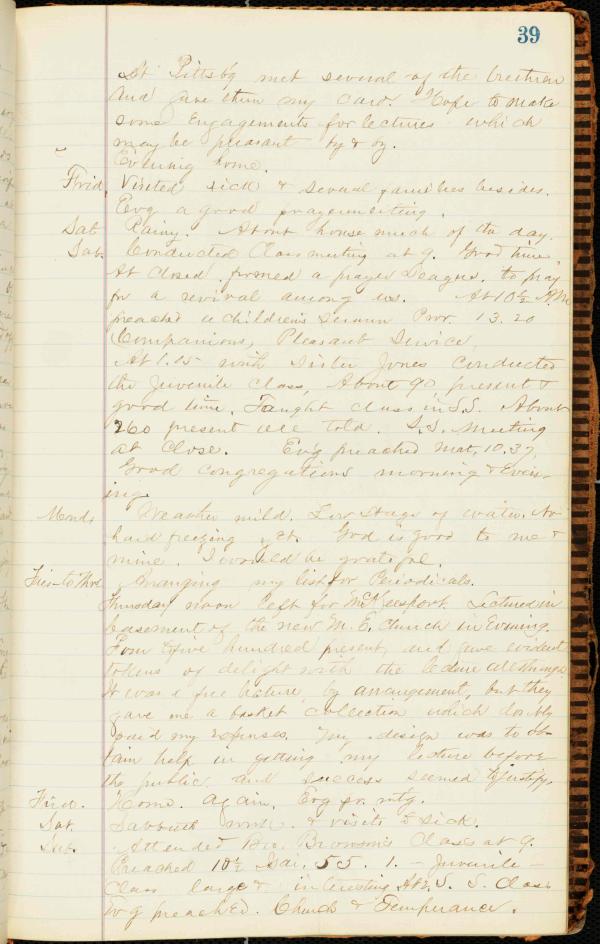 39
At Pittsb'g met several of the brethren
and gave them my card. Hope to make
some engagements for lectures which
may be pleasant by & by.
Evening home.
Frid. Visited sick & several families besides.
Evg a good prayermeeting.
Sat. Rainy. About house much of the day.
Sab. Conducted Class meeting at 9. Good time.
At close formed a prayer League, to pray
for a revival among us. At 10½ A.M.
preached a children's sermon Prov. 13.20
Companions, Pleasant Service.
At 1.15 with Sister Jones conducted
the Juvenile Class, About 90 present &
good time. Taught class in S.S. About
260 present we told. S.S. Meeting
at close. Ev'g preached Mat. 10.37,
Good congregations morning & even-
ing.
Mond. Weather mild. Low stage of water. No
hard freezing yet. God is good to me &
mine. I would be grateful.
Tues- to Thrs Arranging my list for Periodicals.
Thursday noon left for McKeesport. Lectured in
basement of the new M. E. Church in Evening.
Four or five hundred present, and gave evident
tokens of delight with the lecture all through.
It was a free lecture, by arrangement, but they
gave me a basket collection which doubly
paid my expenses. My design was to ob-
tain help in getting my lecture before
the public, and success seemed to justify.
Frid. Home again, Evg pr. mtg.
Sat. Sabbath work & visits to sick.
Sab. Attended Bro. Brown's Class at 9.
Preached 10½ Isai. 55. 1. - Juvenile -
Class large & interesting At 2, S. S. Class
Ev'g preached. Church & Temperance.